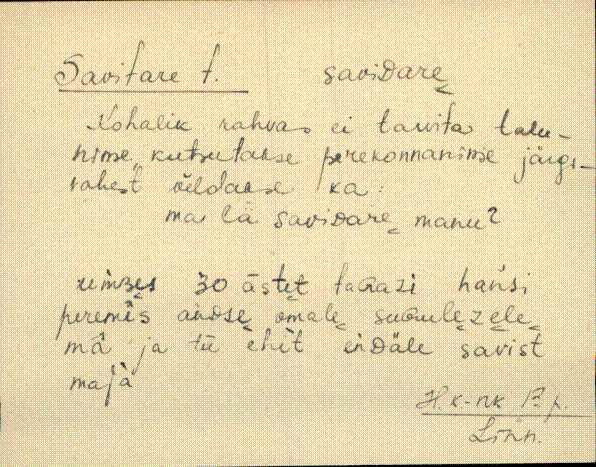 Savitare t. saviDarę
Kohalik rahvas ei tarvita talu-
nime, kutsutakse perekonnanime järgi-
vahest öeldakse ka:
ma lä saviDarę manu?
30 ästęt hansi
peremis anDsę omalę sugulęzęlę
mā ja tū ehit enDäle savist
maja
H. k-nk P. p.
Linn.